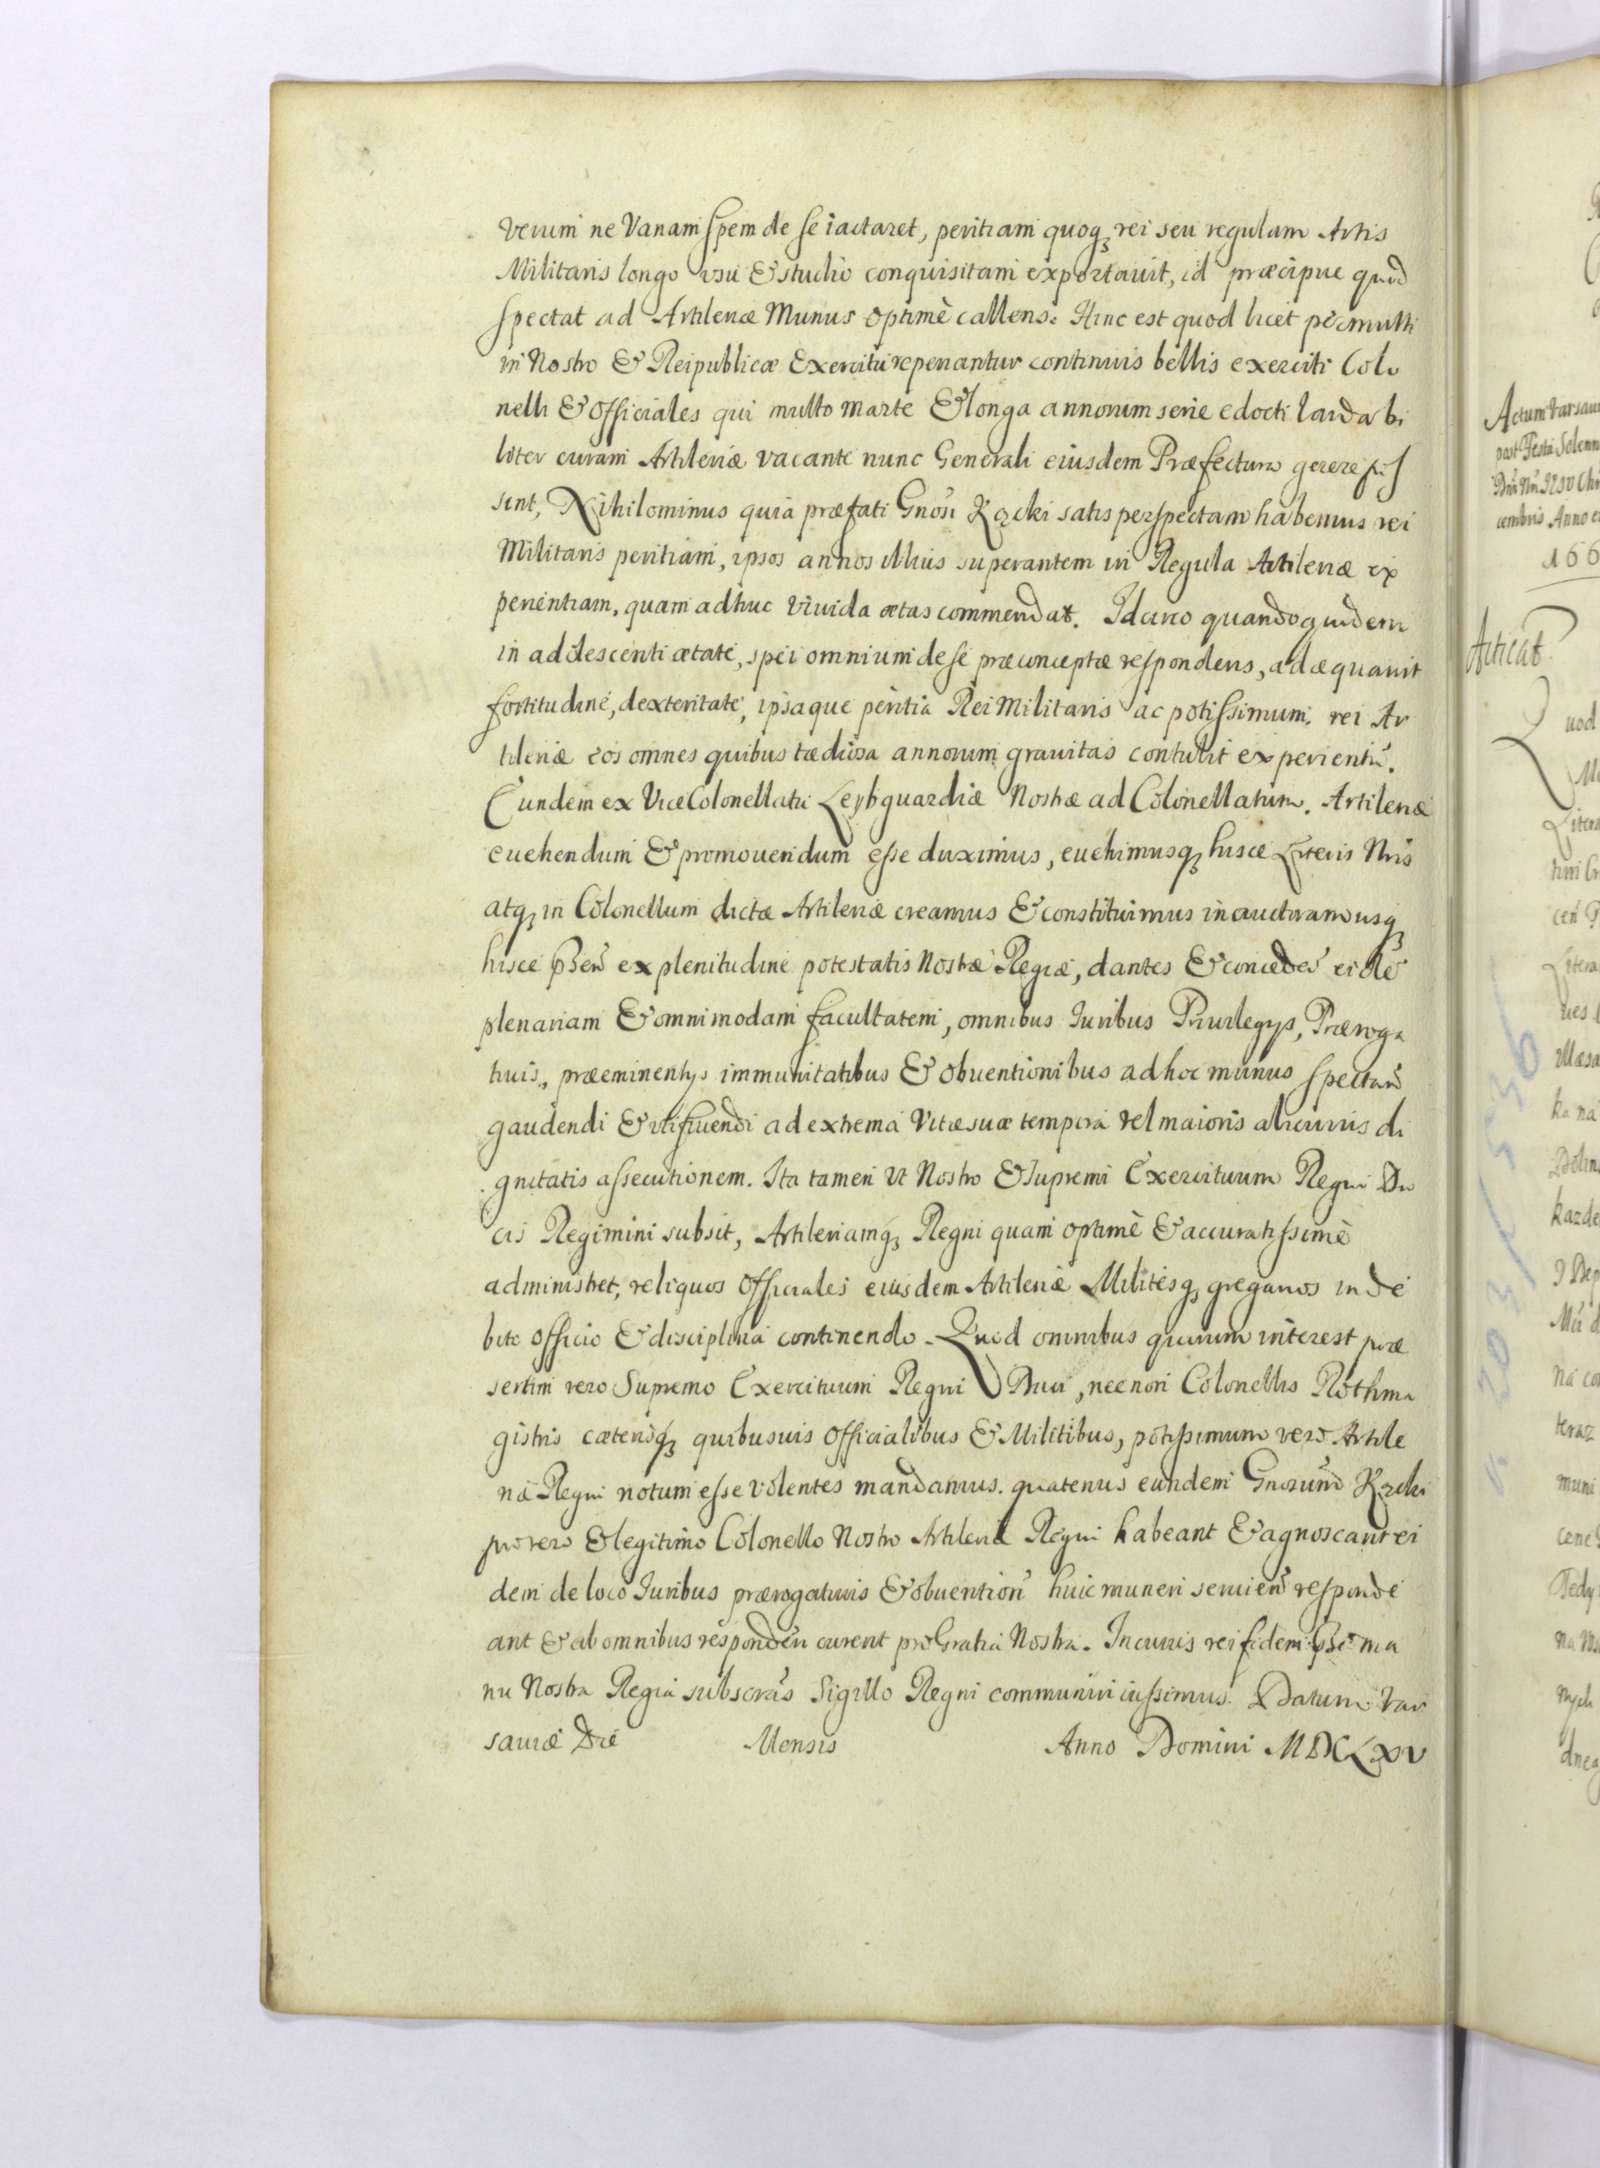 verum ne Vanam spem de se iactaret, peritiam quoq₃ rei seu regulam Artis
Militaris longo usu & studio conquisitam exportavit, id præcipue quod
spectat ad Artileriæ Munus optimè callens. Hinc est quod licet permulti
in Nostro & Reipublicæ Exercitu reperiantur continuis bellis exerciti Colo
nelli & Officiales qui multo marte & longa annorum serie edocti laudabi
liter curam Artileriæ vacante nunc Generali eiusdem Præfectura gerere pos
sint, Nihilominus quia præfati Gnosi Kącki satis perspectam habemus rei
Militaris peritiam, ipsos annos illius superantem in Regula Artileriæ ex
perientiam, quam adhuc Vivida ætas commendat. Idcirco quandoquidem
in adolescenti ætate, spei omnium de se præconceptæ respondens, adæquavit
fortitudine, dexteritate, ipsaque peritia Rei Militaris ac potissimum rei Ar
tileriæ eos omnes quibus tædiosa annorum gravitas contulit experientiã.
Eundem ex ViceColonellatu Leybguardiæ Nostræ ad Colonellatum Artileriæ
evehendum & promovendum esse duximus, evehimusq₃ hisce Literis Nris
atq₃ in Colonellum dictæ Artileriæ creamus & constituimus inauctoramusq₃
hisce p̃sen̄ ex plenitudine potestatis Nostræ Regiæ, dantes & conceden̄ eidē
plenariam & omnimodam facultatem, omnibus Iuribus Privilegÿs, Præroga
tivis, præeminentÿs immunitatibus & obventionibus ad hoc munus spectan̄
gaudendi & utifruendi ad extrema Vitæ suæ tempora vel maioris alicuius di
gnitatis assecutionem. Ita tamen ut Nostro & Supremi Exercituum Regni Du
cis Regimini subsit, Artileriamq₃ Regni quam optimè & accuratissimè
administret, reliquos Officiales eiusdem Artileriæ Militesq₃ gregarios in de
bito officio & disciplina continendo. Quod omnibus quorum interest præ
sertim vero Supremo Exercituum Regni Duci, necnon Colonellis Rothma
gistris cæterisq₃ quibusuis Officialibus & Militibus, potissimum vero Artile
riæ Regni notum esse volentes mandamus. quatenus eundem Gnosum Kącki
pro vero & legitimo Colonello Nostro Artileriæ Regni habeant & agnoscant ei
dem de loco Iuribus prærogativis & obvention̄ huic muneri servien̄ responde
ant & ab omnibus responderi curent pro Gratia Nostra. In cuius rei fidem p̃se ma
nu Nostra Regia subscrās Sigillo Regni communiri iussimus. Datum Var
saviæ Die Mensis Anno Domini MDCLXV
Actum Varsav
post Festa Solenn
166
Acticat
uod
Litera